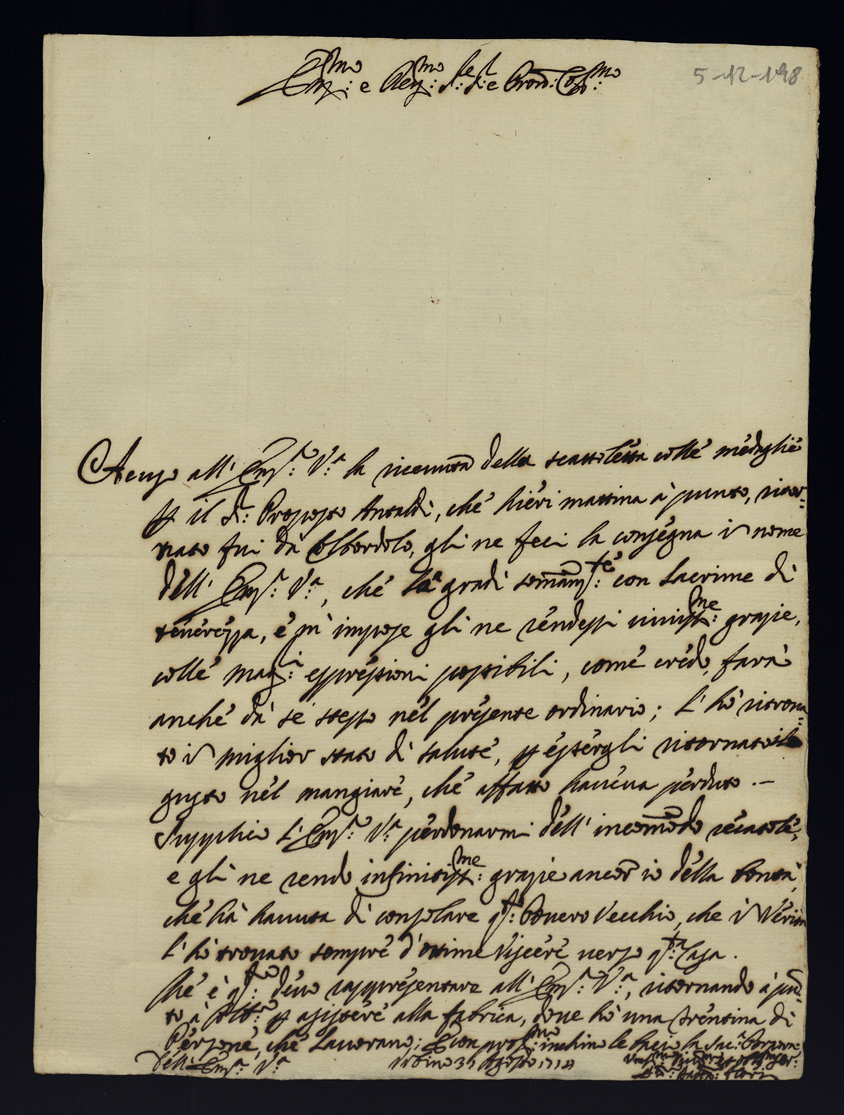 Em.mo e Rev.mo Sig.re Sig.r e Pron: Col.mo
5-12-198
Acuso all' Em.a V.a la riceuuta della scattoletta colle medaglie
p il S.r Proposto Antaldi, che hieri mattina à punto, ritor=
nato fui da Colbordolo, gli ne feci la consegna in nome
dell' Em.a V.a, che la gradì somam.te con lacrime di
tenerezza, e m' impose gli ne rendessi viuiss.me grazie,
colle mag.i espressioni possibili, come credo, farà
anche dà se stesso nel presente ordinario; l' hò ritroua=
to in miglior stato di salute, p essergli ritornato il
gusto nel mangiare, che affatto haueua perduto. –
Supplico l' Em.a V.a perdonarmi dell' incomodo recatole,
e gli ne rendo infinitiss.me grazie ancor io della bontà,
che hà hauuta di consolare q.o pouero Vecchio, che in Verità
l' hò trouato sempre d' ottime viscere uerso q.ta Casa.
Ché è q.to deuo rappresentare all' Em.a V.a, ritornando à pun=
to à p assistere alla fabrica, doue hò una trentina di
Persone, che lauorano; E con prof.mo inchino le bacio la Sac. Porpora
Dell' Em.a V.a Urbino 31 Agosto